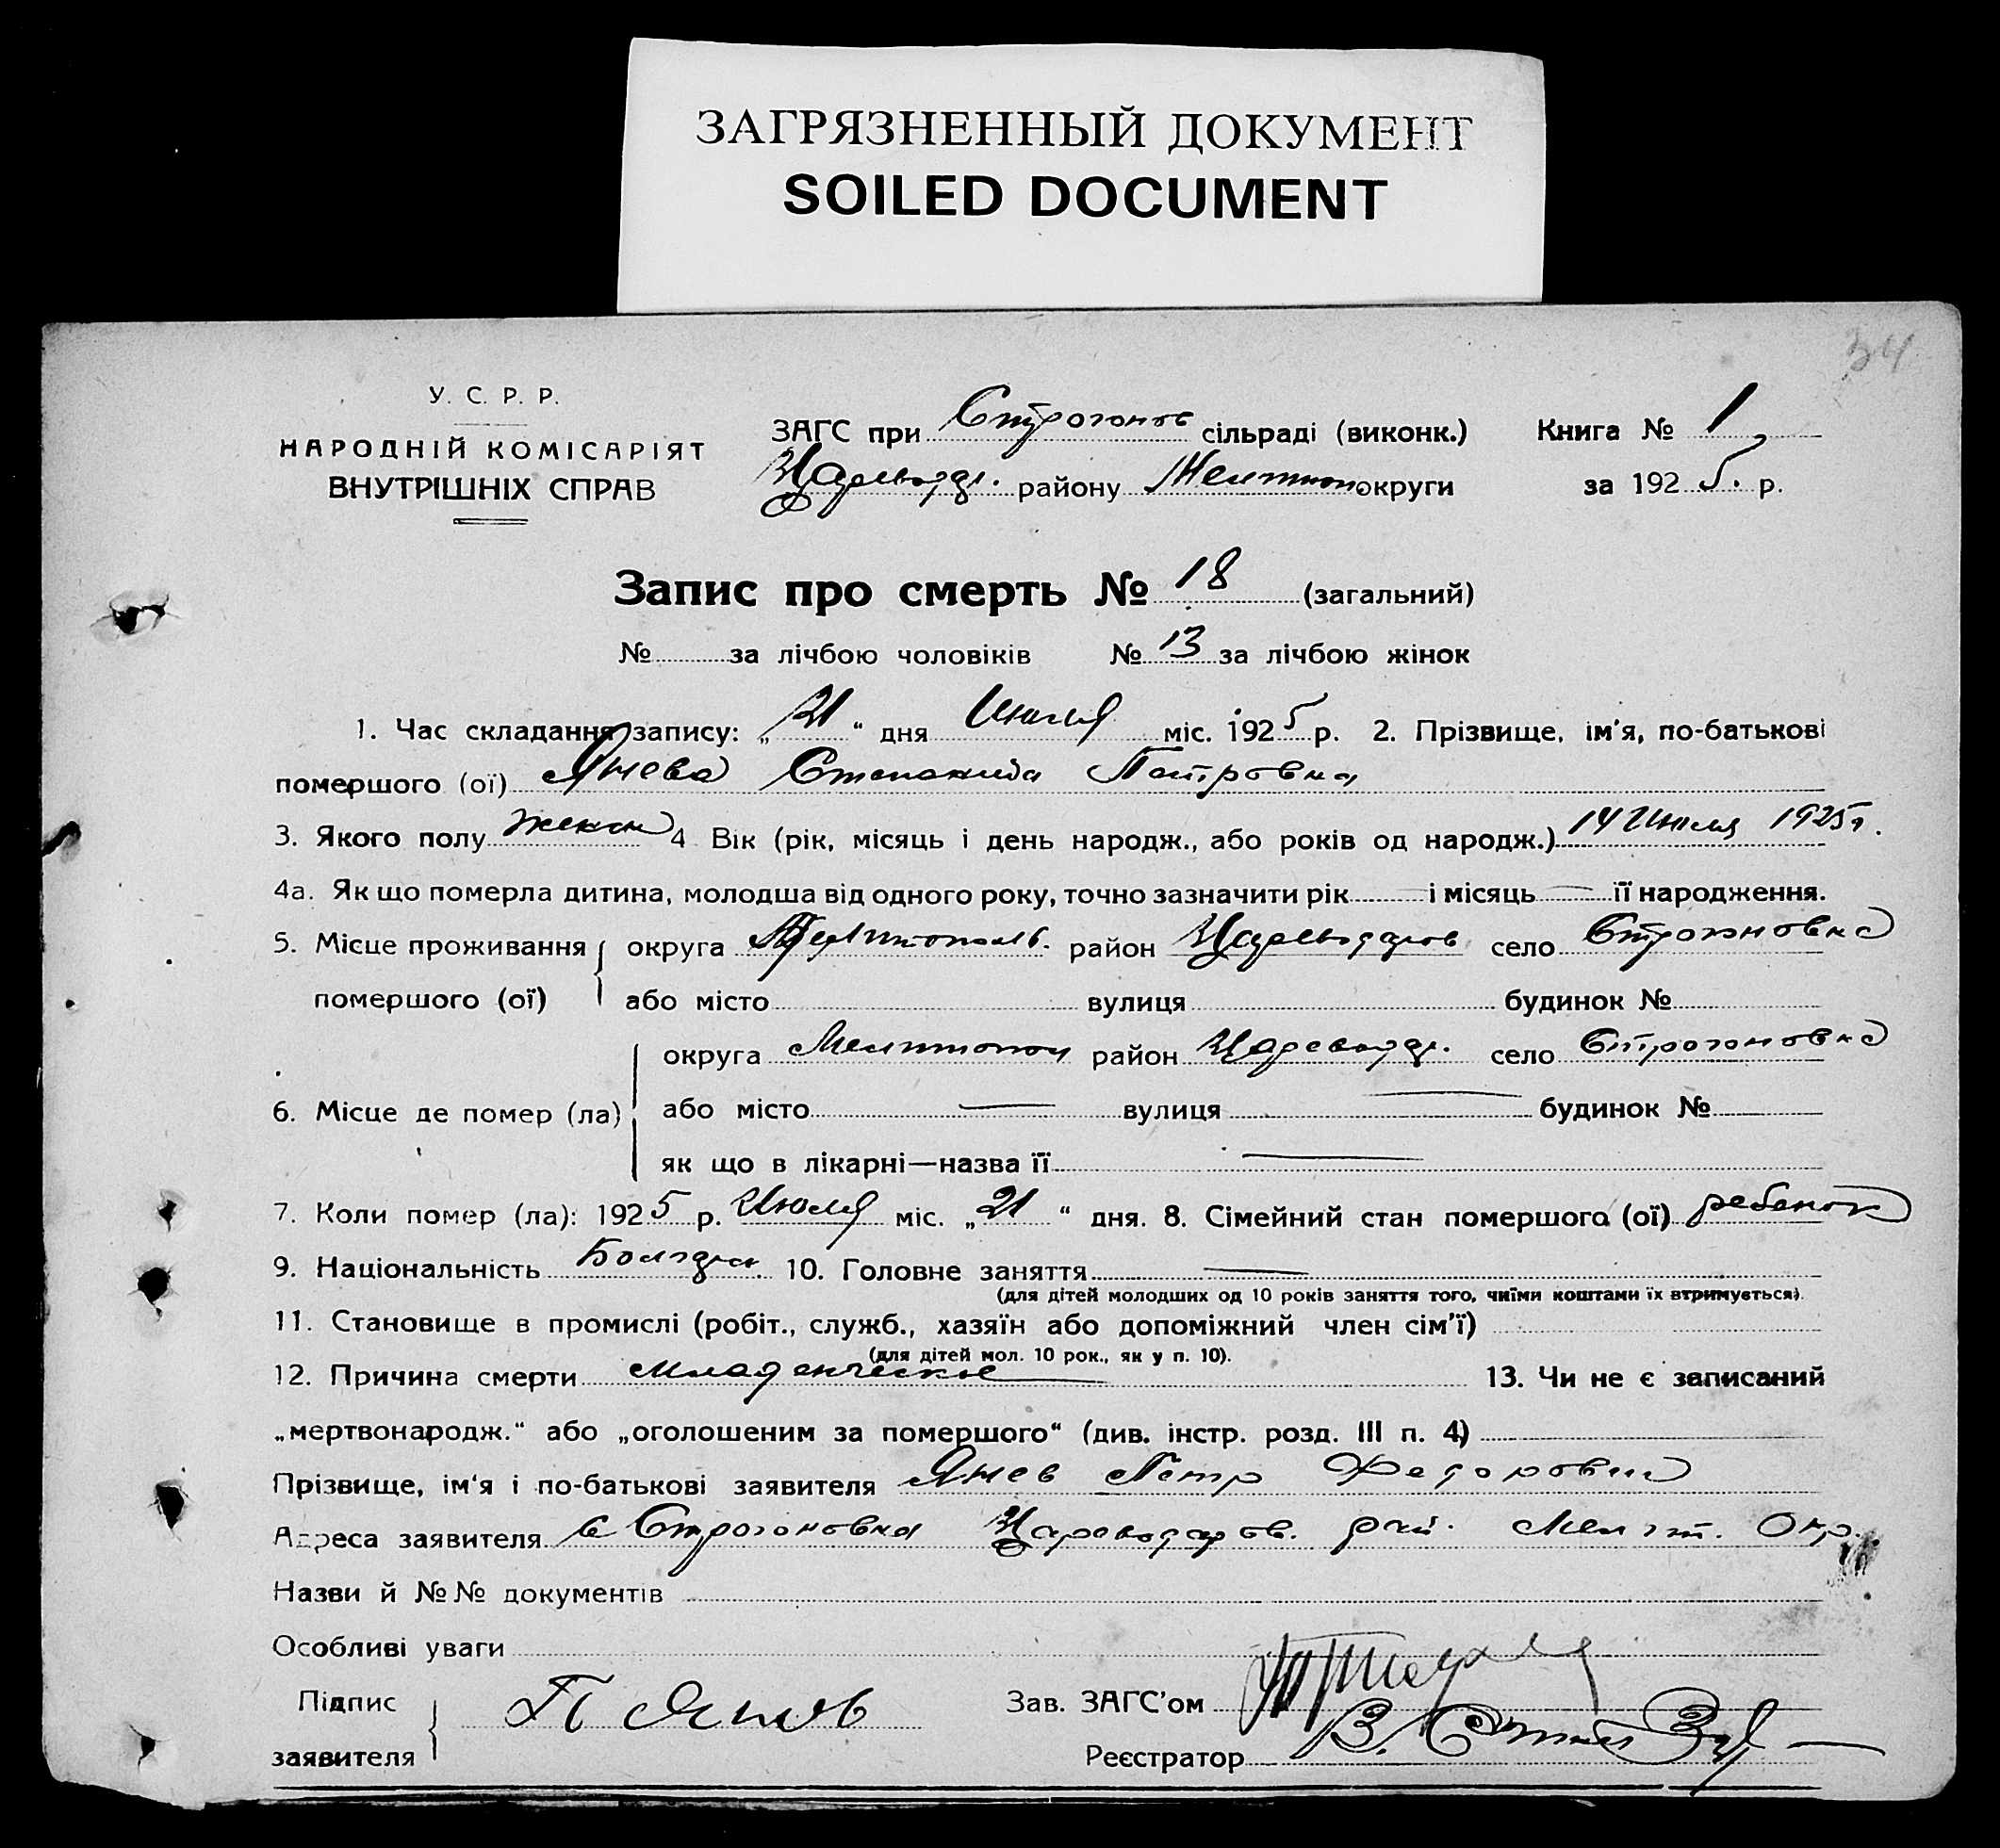 34
ЗАГРЯЗНЕННЫЙ ДОКУМЕНТ
SOILED DOCUMENT
У. С. Р. Р.
НАРОДНІЙ КОМІСАРІЯТ
ВНУТРІШНІХ СПРАВ
ЗАГС при Строгонов сільраді (виконк.) Книга № 1
Цареводар. району Мелитоп. округи за 1925 р.
Запис про смерть № 18 (загальний)
№ за лічбою чоловіків № 13 за лічбою жінок
1. Час складання запису: „21“ дня Июля міс. 1925 р. 2. Прізвище, ім'я, по-батькові
помершого (ої) Янева Степанида Петровна
3. Якого полу женск 4 Вік (рік, місяць і день народж., або років од народж.) 14 Июля 1925 г.
4а. Як що померла дитина, молодша від одного року, точно зазначити рік — і місяць — її народження.
5. Місце проживання помершого (ої) округа Мелитополь. район Цареводаров село Строгоновка
або місто вулиця будинок №
6. Місце де помер (ла) округа Мелитопол район Цареводар. село Строгоновка
або місто — вулиця — будинок №
як що в лікарні—назва її —
7. Коли помер (ла): 1925 р. Июля міс. „21“ дня. 8. Сімейний стан помершого (ої) ребенок
9. Національність Болгарк. 10. Головне заняття —
(для дітей молодших од 10 років заняття того, чиїми коштами їх втримується).
11. Становище в промислі (робіт., служб., хазяїн або допоміжний член сім'ї)
(для дітей мол. 10 рок., як у п. 10).
12. Причина смерти младенческое 13. Чи не є записаний
„мертвонародж.“ або „оголошеним за помершого“ (див. інстр. розд. III п. 4)
Прізвище, ім'я і по-батькові заявителя Янев Петр Федорович
Адреса заявителя с Строгоновка Цареводаров. рай. Мелит. Окр.
Назви й №№ документів
Особливі уваги
Підпис заявителя П Янев Зав. ЗАГС'ом
Реєстратор В.